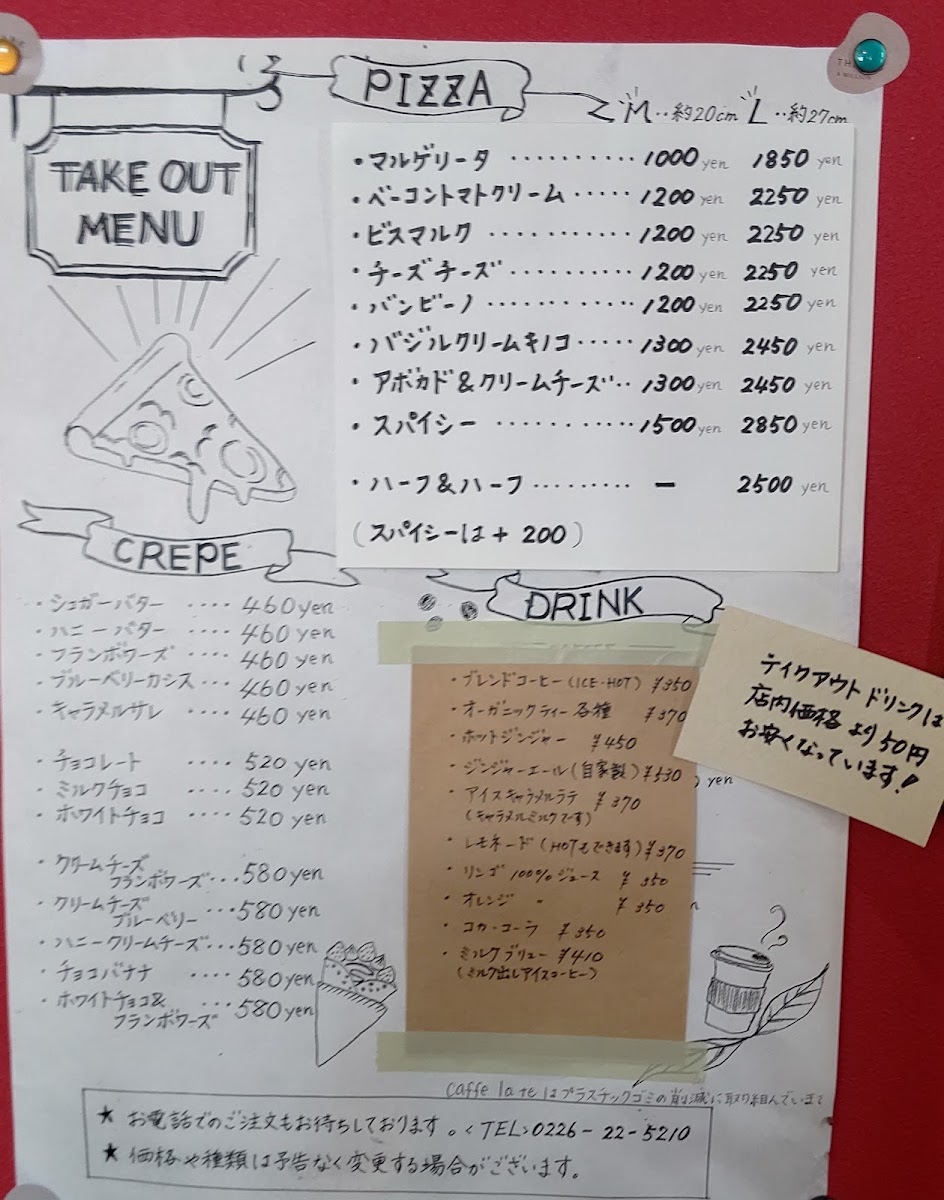 TAKE OUT
MENU
PIZZA
M‥約20cm L‥約27cm
・マルゲリータ ・・・・・・・・・・ 1000 yen 1850 yen
・ベーコントマトクリーム ・・・・・ 1200 yen 2250 yen
・ビスマルク ・・・・・・・・・・・ 1200 yen 2250 yen
・チーズチーズ ・・・・・・・・・・ 1200 yen 2250 yen
・バンビーノ ・・・・・・・・・・・ 1200 yen 2250 yen
・バジルクリームキノコ ・・・・・ 1300 yen 2450 yen
・アボカド&クリームチーズ‥ 1300 yen 2450 yen
・スパイシー ・・・・・・・・・・・ 1500 yen 2850 yen
・ハーフ&ハーフ ・・・・・・・・・ ー 2500 yen
(スパイシーは + 200)
CREPE
・シュガーバター ・・・・ 460yen
・ハニーバター ・・・・ 460yen
・フランボワーズ ・・・・ 460yen
・ブルーベリーカシス ・・・・ 460yen
・キャラメルサレ ・・・・ 460yen
・チョコレート ・・・・ 520yen
・ミルクチョコ ・・・・ 520yen
・ホワイトチョコ ・・・・ 520yen
・クリームチーズ
フランボワーズ・・・580yen
・クリームチーズ
ブルーベリー ・・・580yen
・ハニークリームチーズ・・・580yen
・チョコバナナ ・・・・ 580yen
・ホワイトチョコ& ・・・ 580yen
フランボワーズ
DRINK
・ブレンドコーヒー(ICE・HOT) ¥350
・オーガニックティー各種 ¥370
・ホットジンジャー ¥450
・ジンジャーエール(自家製) ¥530
yen
・アイスキャラメルラテ ¥370
(キャラメルミルクです)
・レモネード (HOTもできます) ¥370
・リンゴ 100%ジュース ¥350
・オレンジ 〃 ¥350
・コカ・コーラ ¥350
・ミルクブリュー ¥410
(ミルク出しアイスコーヒー)
テイクアウトドリンクは
店内価格より50円
お安くなっています!
caffe lateはプラスチックゴミの削減に取り組んでいます
★ お電話でのご注文もお待ちしております。<TEL:0226-22-5210
★ 価格や種類は予告なく変更する場合がございます。